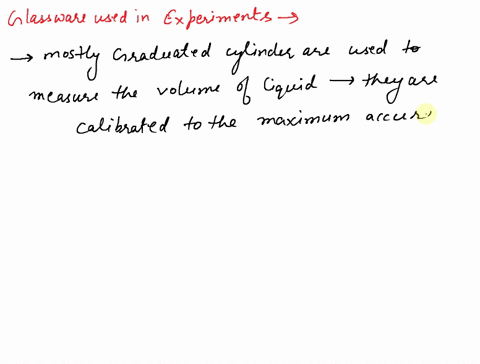 Glassware used in Experiments →
→ mostly Graduated cylinder are used to
measure the volume of liquid → they are
calibrated to the maximum accur